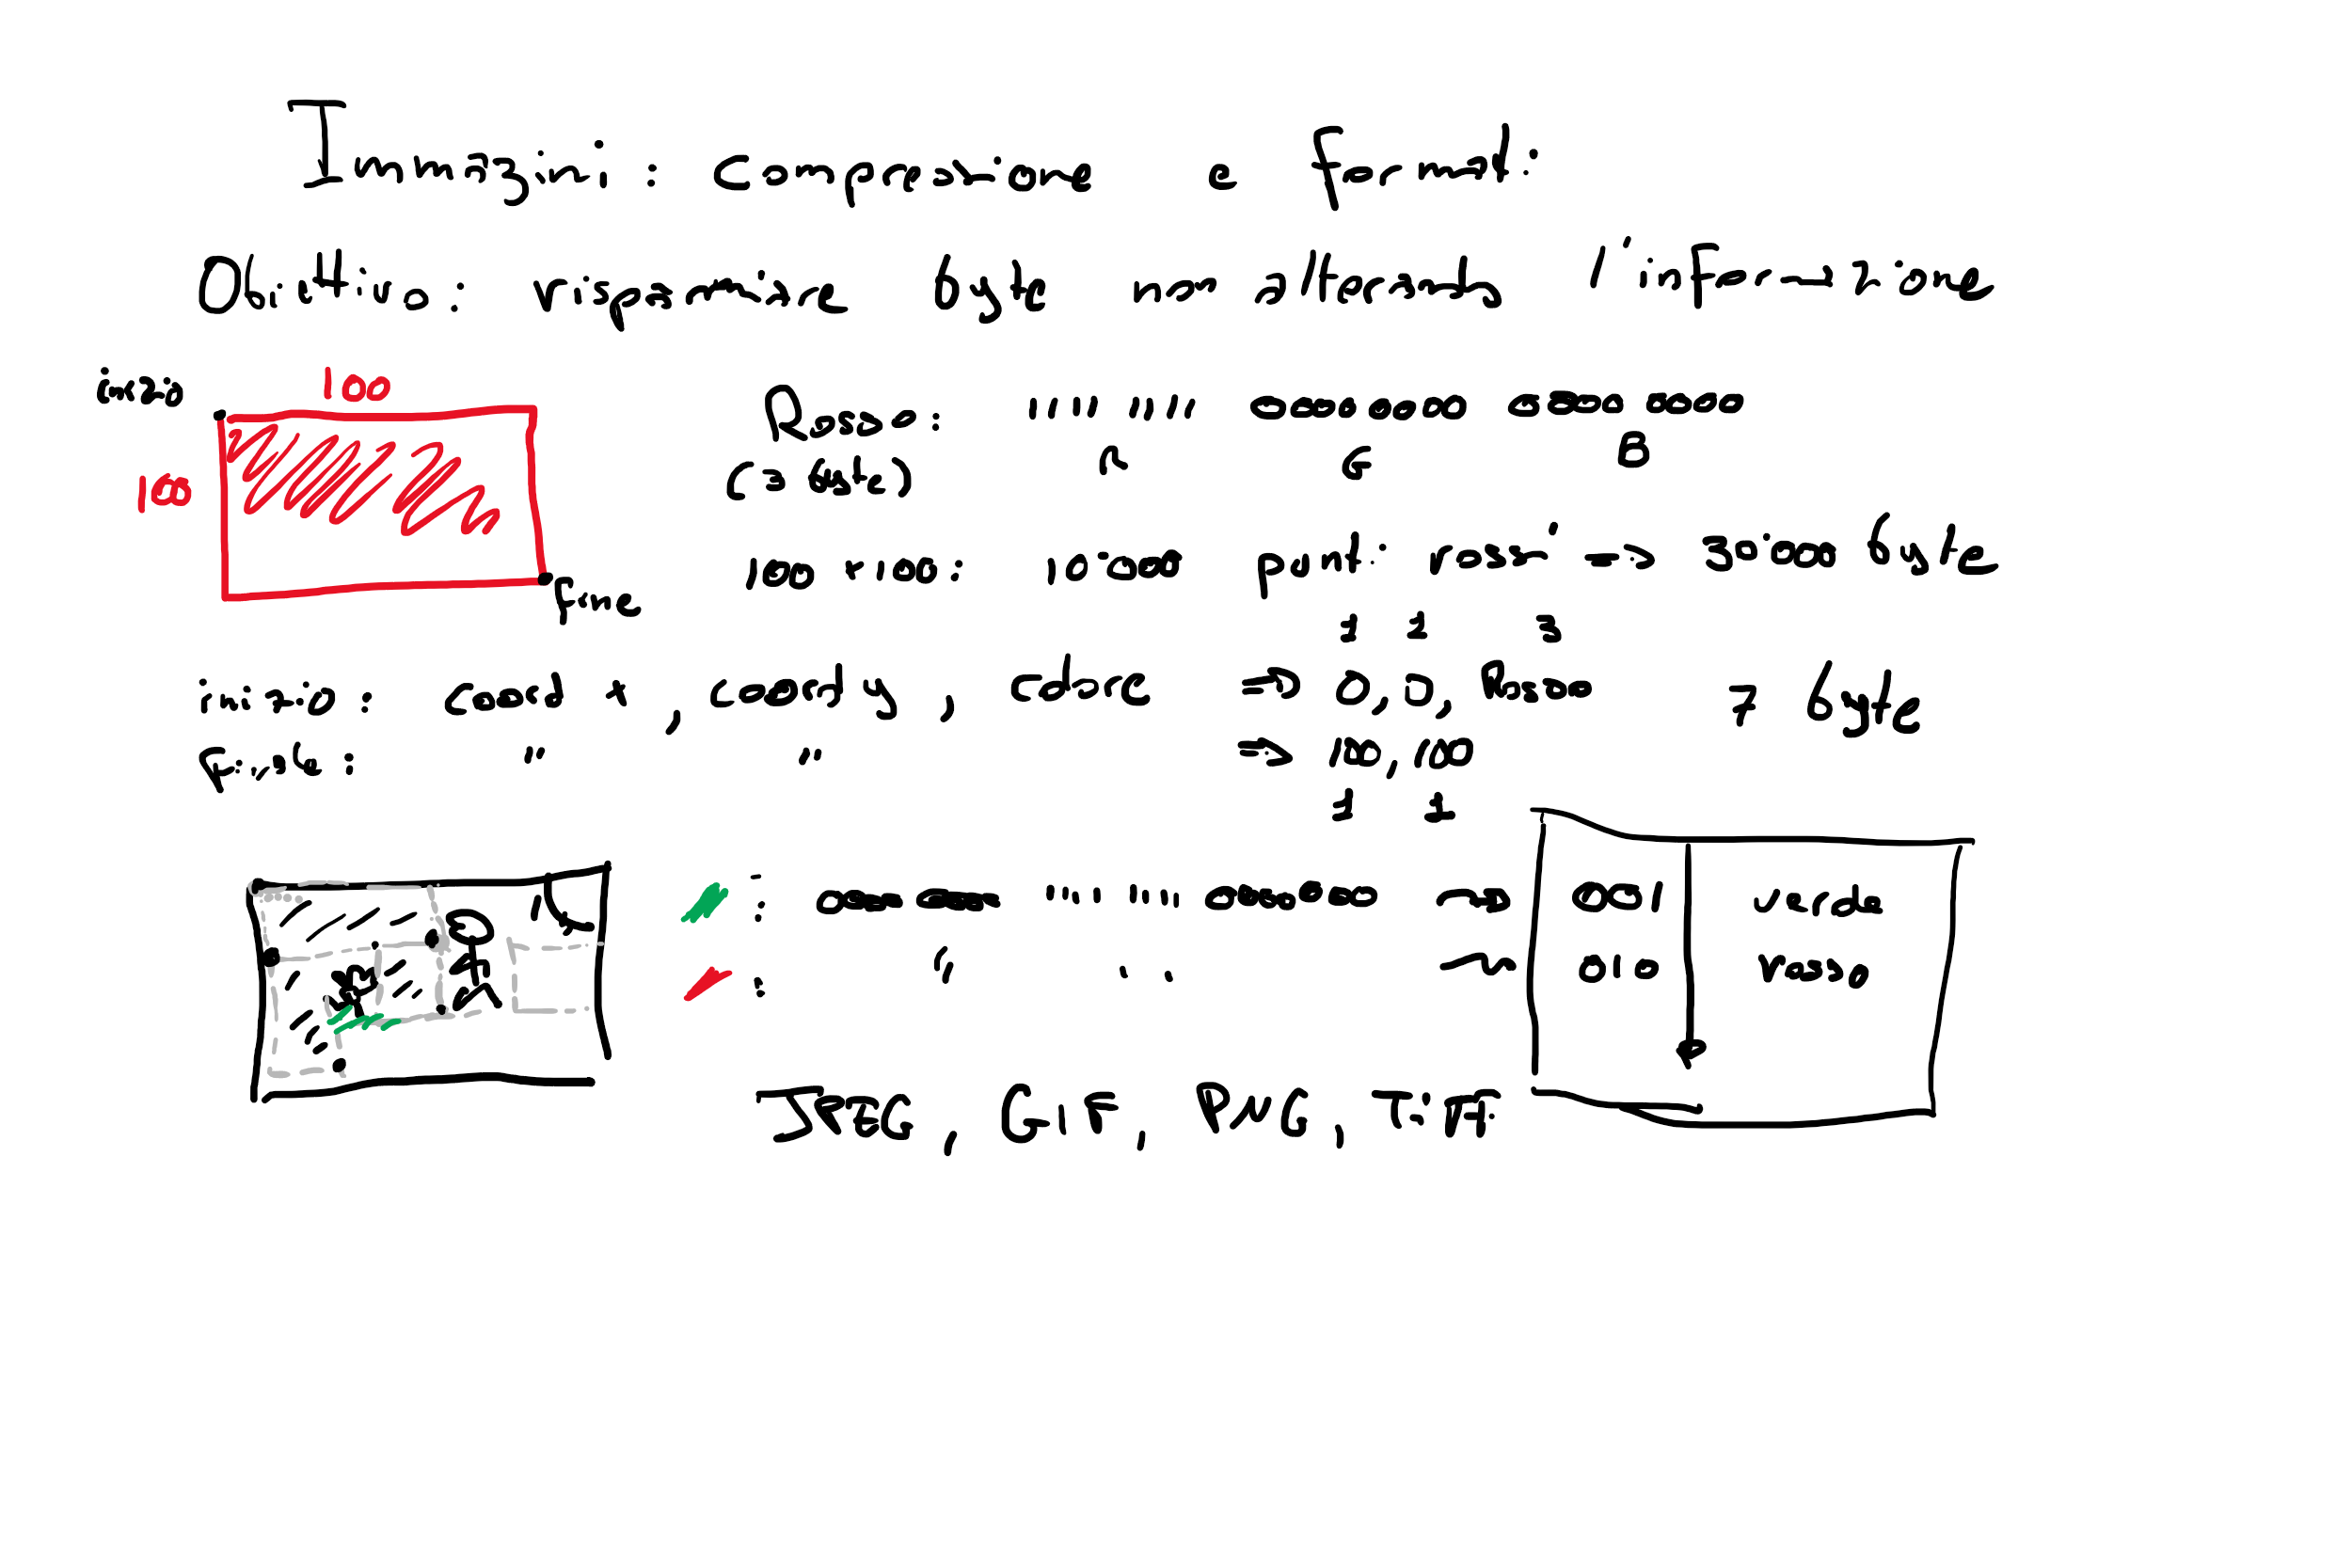 Immagini: compressione e formati
Obiettivo: risparmiare byte non alterando l'informazione
inizio 100
100
fine
Rosso: 1111 1111 00000000 0000 0000
(3 byte) R G B
100 × 100: 10'000 punti rossi => 30'000 byte
1 1 3
inizio: coord x, coord y, colore => 0, 0, Rosso 7 byte
finale: " " => 100, 100
1 1
: 0000 0000 1111 1111 0000 0000 → 001 verde
: " .. → 010 rosso
JPEG, GIF, PNG, Tiff